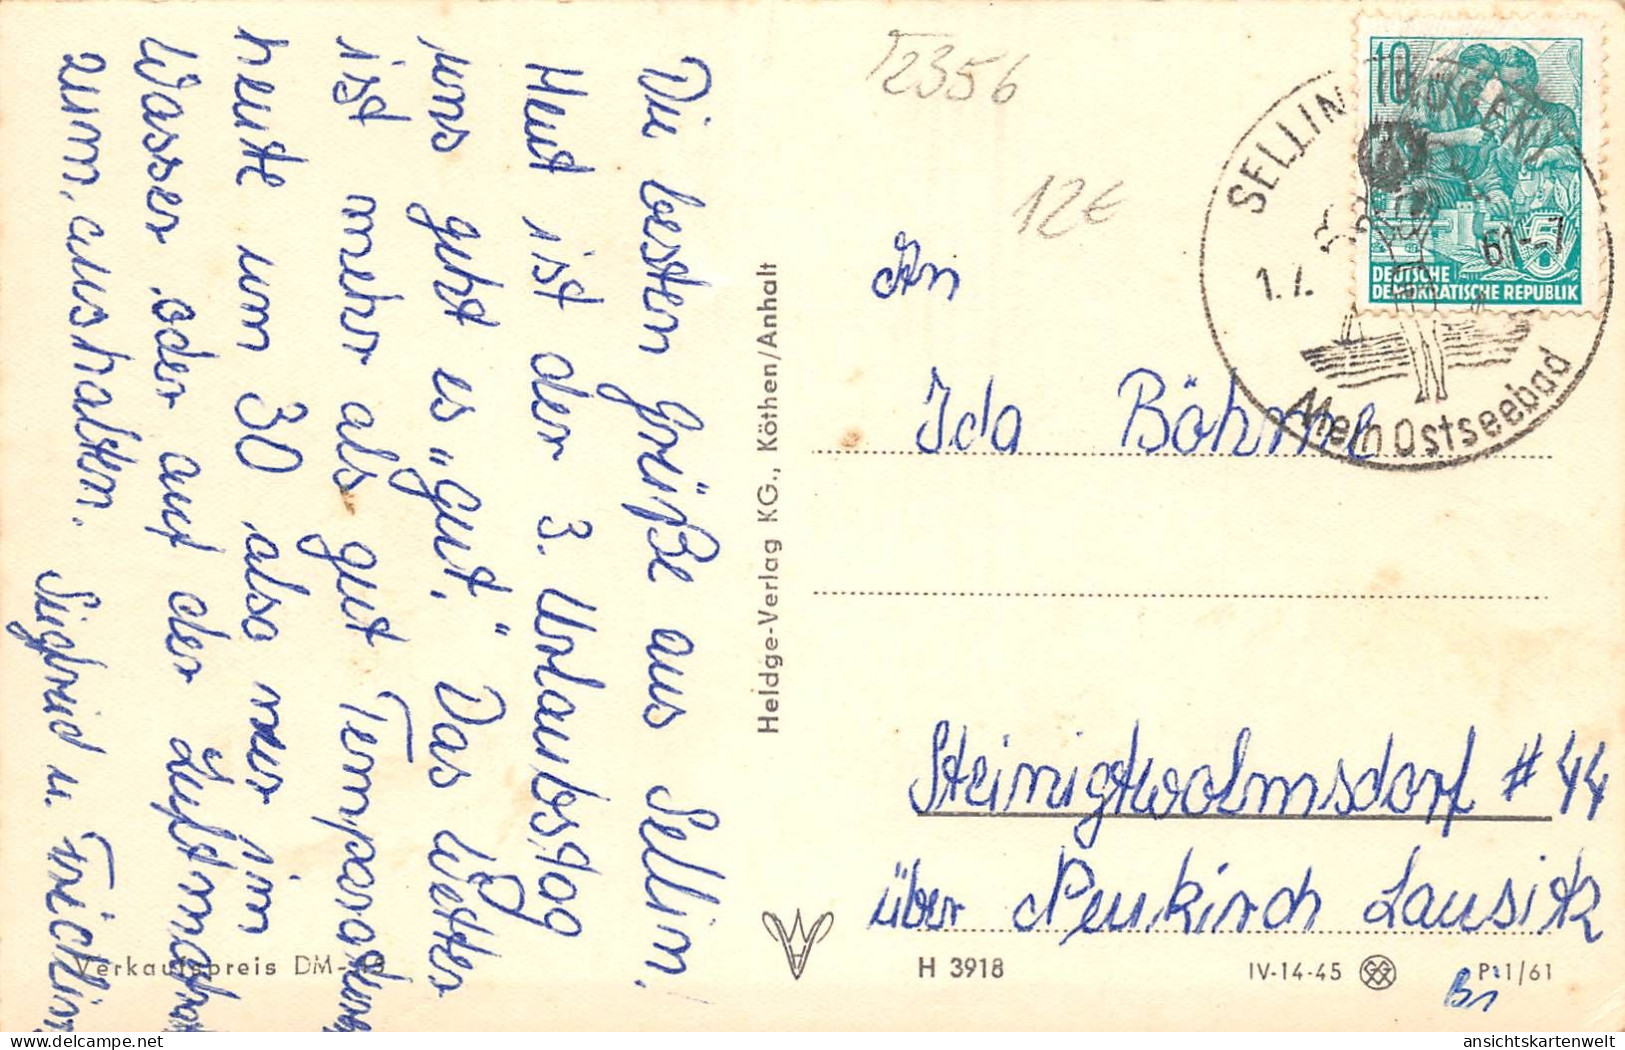 Die besten Grüße aus Sellin!
Heut ist der 3. Urlaubstag
uns geht es „gut“. Das Wetter
ist mehr als gut Temparaturen
heute um 30 also nur im
Wasser oder auf der Luftmatratze
zum aushalten.
Siegfried u.
T2356
12€
An
Ida Böhme
Steinigtwolmsdorf # 44
über Neukirch Lausitz
10
DEUTSCHE
DEMOKRATISCHE REPUBLIK
5
SELLIN (RÜGEN)
61-7
Mein Ostseebad
Heldge-Verlag KG., Köthen/Anhalt
Verkaufspreis DM
H 3918
IV-14-45
P 1/61
ansichtskartenwelt